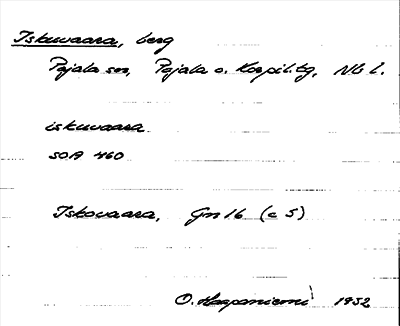 Iskuvaara, berg
Pajala sn, Pajala o. Korpil. tg, Nb l.
iskuvaara
SOA 460
Iskovaara, Gn 16 (c 5)
O. Haapaniemi 1932